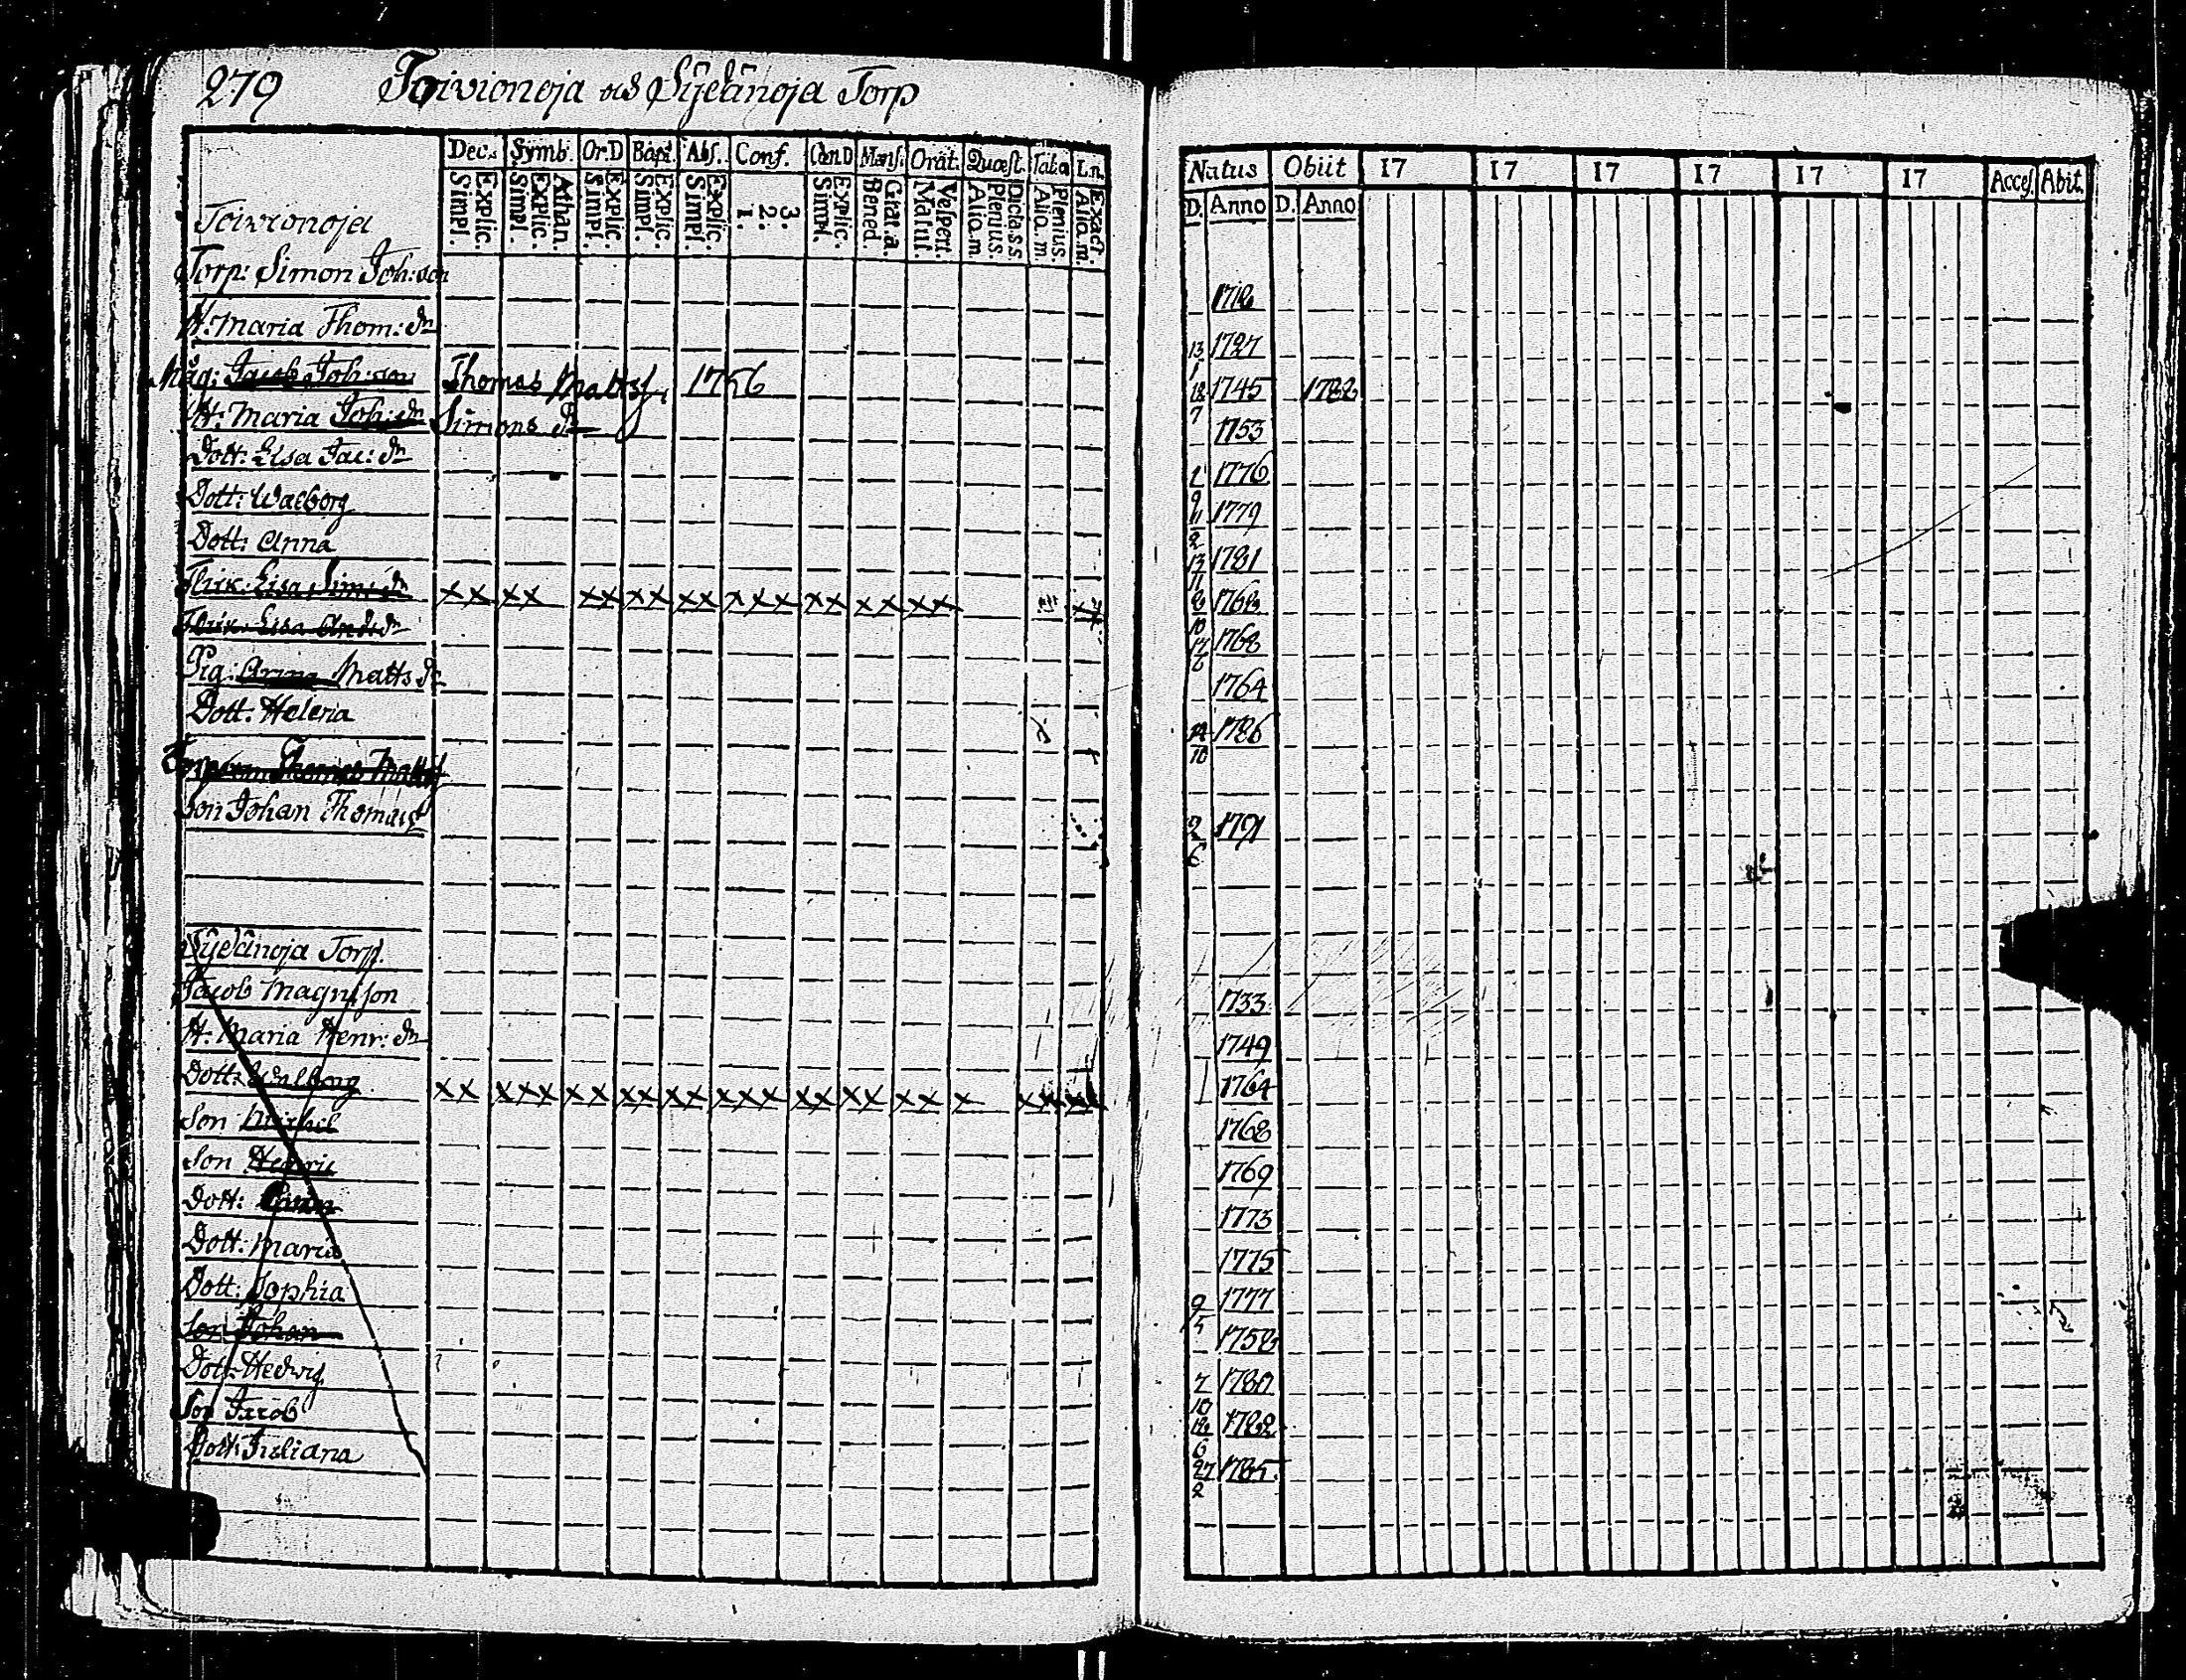 279 Toivionoja och Sÿdänoja Torp
Dec. Symb. Or.D Bapt. Abs. Conf. Cœn.D Mens. Orat. Quæst. Tab.a L.n.
Simpl. Explic. Simpl. Explic. Athan. Simpl. Explic. Simpl. Explic. Simpl. Explic. 1. 2. 3. Simpl. Explic. Bened. Grat. a. Matut. Vespert. Aliq. m. Plenius. Dicta. s s Aliq. m. Plenius. Aliq. m. Exact.
Natus Obiit 17 17 17 17 17 17 Acces. Abit.
D. Anno D. Anno
Toivionoja
Torp: Simon Joh:son 1718
H: Maria Thom: dr 13 1 1727
Måg: Jacob Joh:son Thomas Mattsf. 1756 18 7 1745 1788
H: Maria Joh: dr Simons dr 1753
Dott: Lisa Jac: dr 1 9 1776
Dott: Walborg 11 2 1779
Dott: Anna 13 11 1781
Flick: Lisa Sim: dr xx xx xx xx xx xxx xx xx xx 8 10 1768
Flick: Lisa And: dr 1768
Pig: Anna Matts dr 1764
Dott: Helena 10 1786
Torp:ren Thomas Mattsf
Son Johan Thomasf 2 6 1791
Sÿdänoja Torp.
Jacob Magnisson 1733
H: Maria Henr: dr 1749
Dott: Walborg xx xxx xx xx xx xxx xx xx xx x 1764
Son Michel 1768
Son Henric 1769
Dott: 1773
Dott: Maria 1775
Dott: Sophia 9 5 1777
Son Johan 1758
Dott: Hedwig 7 10 1780
Son Jacob 18 6 1782
Dott: Juliana 27 2 1785